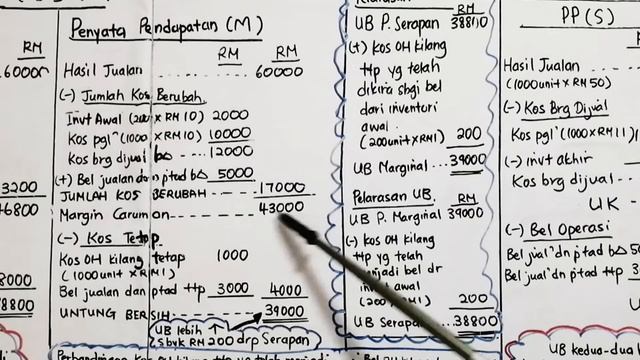 Penyata Pendapatan (M)
RM RM
Hasil Jualan ...... 60000
(-) Jumlah Kos Berubah
Invt Awal (200 x RM 10) 2000
Kos pgl^n (1000 x RM 10) 10000
Kos brg dijual b∆ 12000
(+) Bel jualan dan ptad b∆ 5000
JUMLAH KOS BERUBAH ------ 17000
Margin Caruman ---------- 43000
(-) Kos Tetap
Kos OH kilang tetap 1000
(1000 unit x RM1)
Bel jualan dan ptad ttp 3000 4000
UNTUNG BERSIH ...... 39000
UB lebih ↑
sbyk RM 200 drp Serapan
60000
3200
46800
8000
38800
RM
UB P. Serapan 38800
(+) Kos OH kilang
ttp yg telah
dikira sbgi bel
dari inventori
awal.
(200 unit x RM1) 200
UB Marginal ... 39000
Pelarasan UB RM
UB P. Marginal 39000
(-) Kos OH kilang
ttp yg telah
menjadi bel dr
invt awal
(200 x RM1) 200
UB Serapan 38800
PP (S)
Hasil Jualan ------
(1000 unit x RM 50)
(-) Kos Brg Dijual
Kos pgl^n (1000 x RM 11)
(-) invt akhir
Kos brg dijual ---
UK -
(-) Bel Operasi
Bel jual^n dn ptad b∆ 50
Bel jual^n dn ptad ttp 3
UB kedua-dua